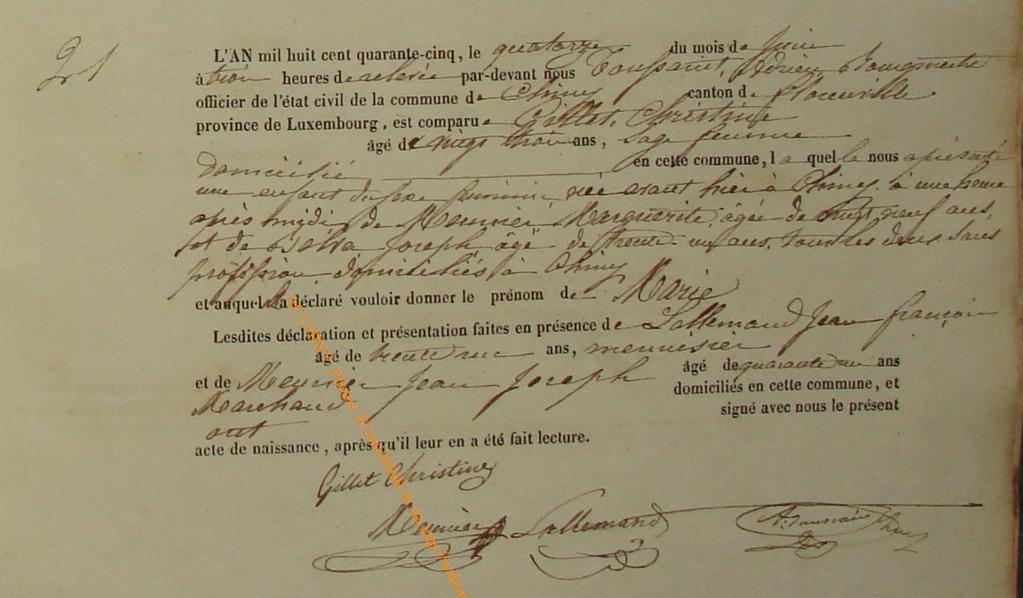 21
L'AN mil huit cent quarante-cinq, le quatorze du mois de Juin
à trois heures de relevée par-devant nous Toussaint, Adrien
officier de l'état civil de la commune de Chiny canton de Florenville
province de Luxembourg, est comparue Gillet, Christine
âgé de vingt trois ans, sage femme
domicilié en cette commune, laquelle nous a présenté
une enfant du sexe féminin, née avant hier à Chiny à une heure
après midi de Meunier Marguerite, âgée de vingt neuf ans,
et de Joseph âgé de trente un ans, tous les deux sans
profession domiciliés à Chiny
et auquel Elle a déclaré vouloir donner le prénom de Marie
Lesdites déclaration et présentation faites en présence de Lallemand Jean françois
âgé de trente un ans, menuisier
et de Meunier Jean Joseph âgé de quarante un ans
Marchand domiciliés en cette commune, et
ont signé avec nous le présent
acte de naissance, après qu'il leur en a été fait lecture.
Gillet Christine
Meunier Lallemand A. Toussaint